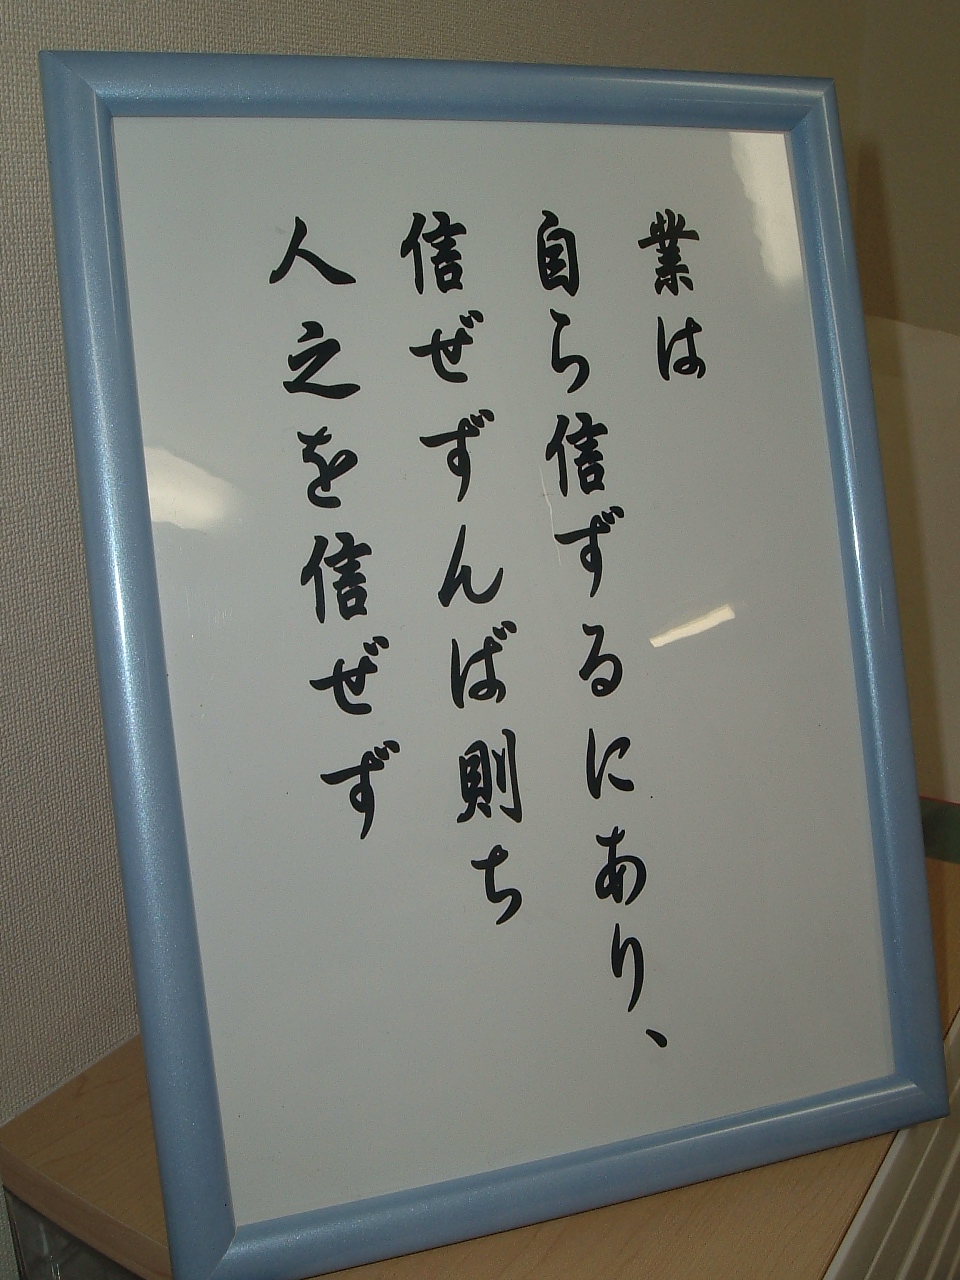 業は
自ら信ずるにあり、
信ぜずんば則ち
人之を信ぜず